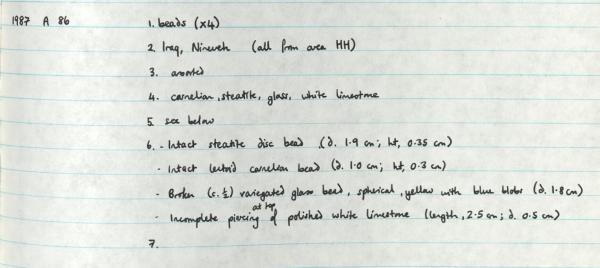 1987 A 86 1. beads (x4)
2. Iraq, Nineveh (all from area HH)
3. assorted
4. carnelian, steatite, glass, white limestone
5. see below
6. - Intact steatite disc bead (d. 1.9 cm; ht, 0.35 cm)
- Intact lentoid carnelian bead (d. 1.0 cm; ht, 0.3 cm)
- Broken (c. ½) variegated glass bead, spherical, yellow with blue blobs (d. 1.8 cm)
at top
- Incomplete piercing of polished white limestone (length, 2.5 cm; d. 0.5 cm)
7.